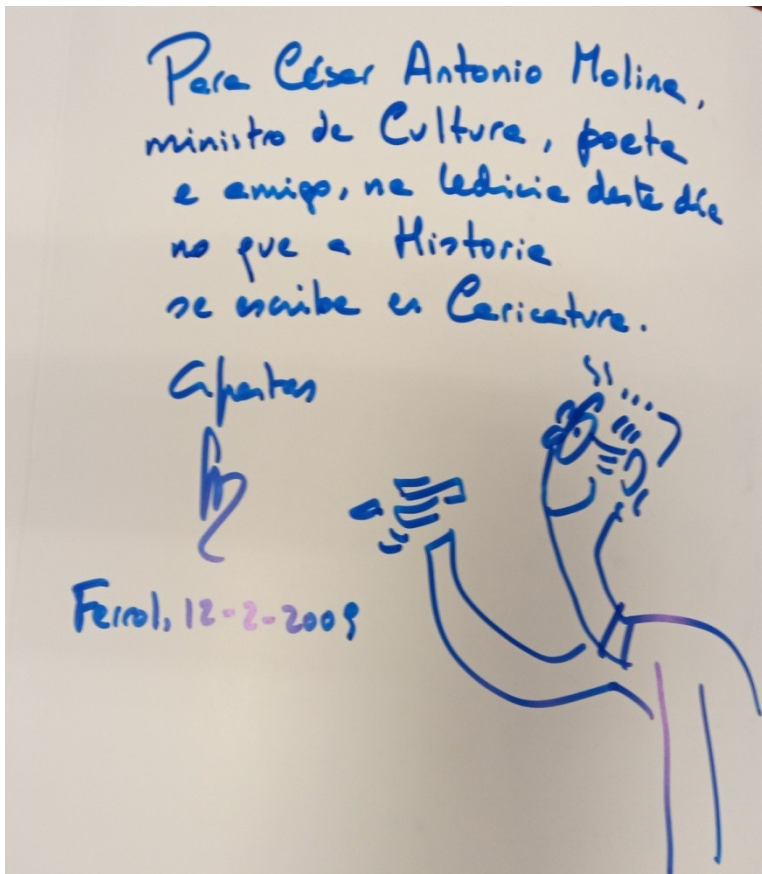 Para César Antonio Molina,
ministro de Cultura, poeta
e amigo, na ledicia deste día
no que a Historia
se escribe en Caricatura.
Apertas
Ferrol, 12-2-2009